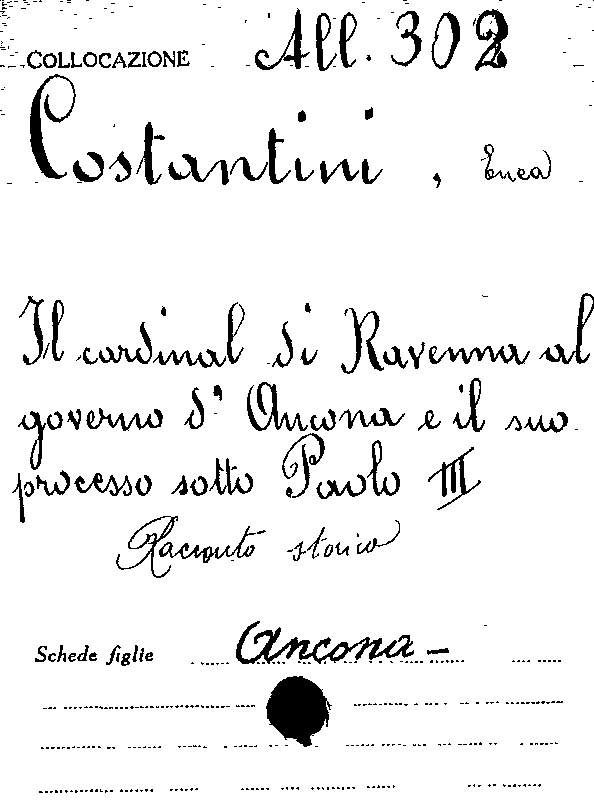 COLLOCAZIONE All. 302
Costantini, Enea
Il cardinal di Ravenna al
governo d' Ancona e il suo
processo sotto Paolo III
Racconto storico
Schede figlie Ancona -